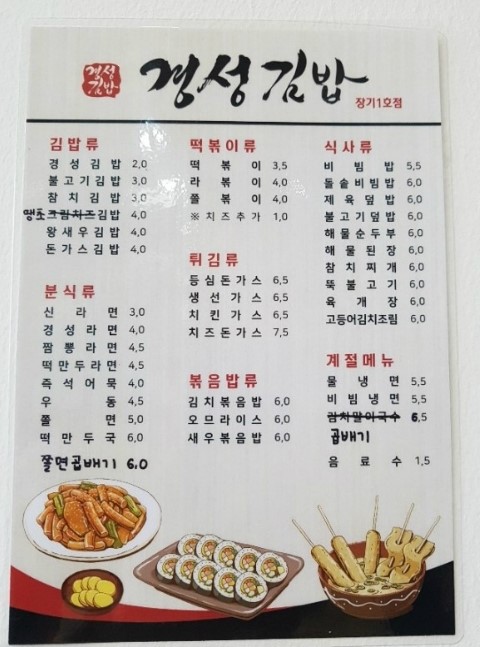 경성
김밥
경성김밥
장기1호점
김밥류
경성김밥 2,0
불고기김밥 3,0
참치김밥 3,0
땡초크림치즈김밥 4,0
왕새우김밥 4,0
돈가스김밥 4,0
분식류
신라면 3,0
경성라면 4,0
짬뽕라면 4,5
떡만두라면 4,5
즉석어묵 4,0
우동 4,5
쫄면 5,0
떡만두국 6,0
쫄면곱배기 6,0
떡볶이류
떡볶이 3,5
라볶이 4,0
쫄볶이 4,0
※치즈추가 1,0
튀김류
등심돈가스 6,5
생선가스 6,5
치킨가스 6,5
치즈돈가스 7,5
볶음밥류
김치볶음밥 6,0
오므라이스 6,0
새우볶음밥 6,0
식사류
비빔밥 5,5
돌솥비빔밥 6,0
제육덮밥 6,0
불고기덮밥 6,0
해물순두부 6,0
해물된장 6,0
참치찌개 6,0
뚝불고기 6,0
육개장 6,0
고등어김치조림 6,0
계절메뉴
물냉면 5,5
비빔냉면 5,5
김치말이국수 6,5
곱배기
음료수 1,5